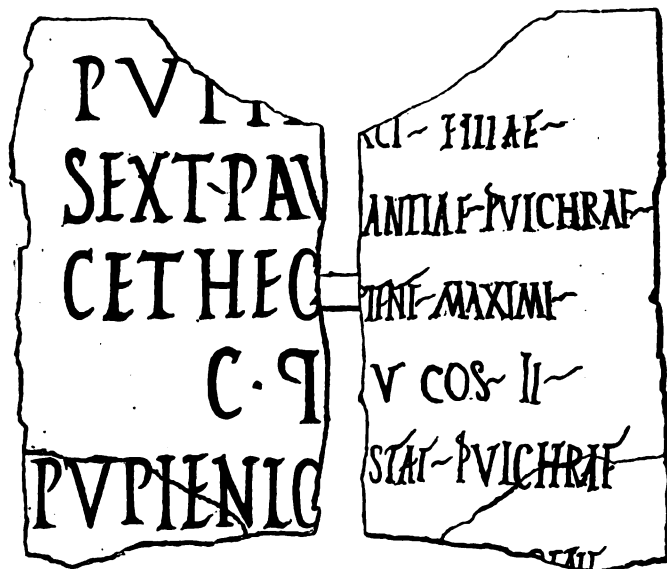 PVPI
SEXT·PAV
CETHEG
C·
PVPIENIO
RCI FILIAE
ANTIAE PVLCHRAE
PIENI MAXIMI
V COS II
STAE PVLCHRAE